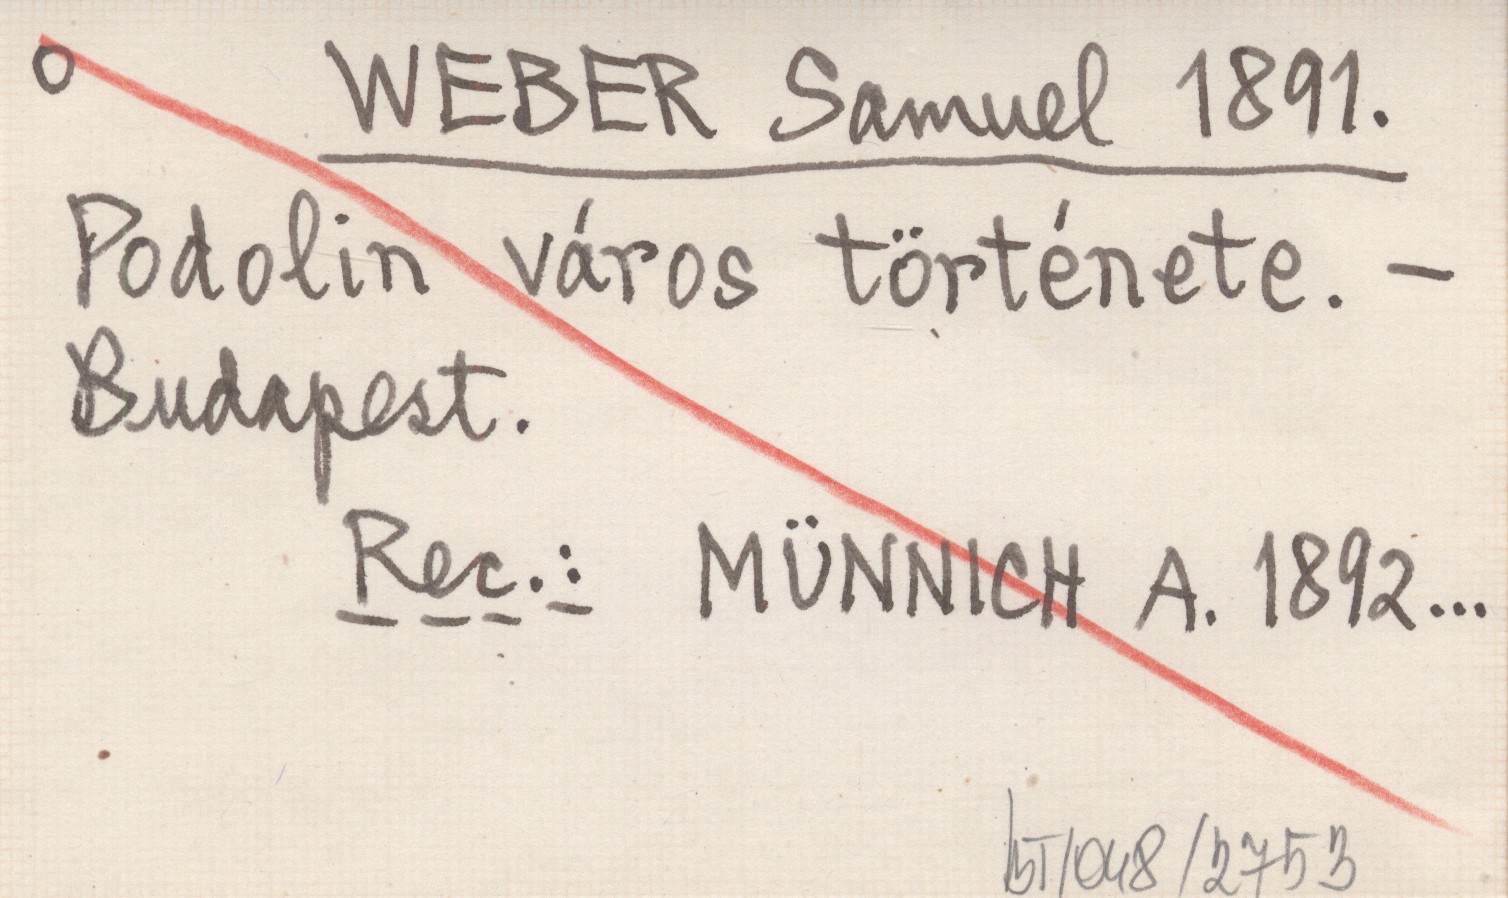 o WEBER Samuel 1891.
Podolin város története. —
Budapest.
Rec.: MÜNNICH A. 1892...
BT/048/2753